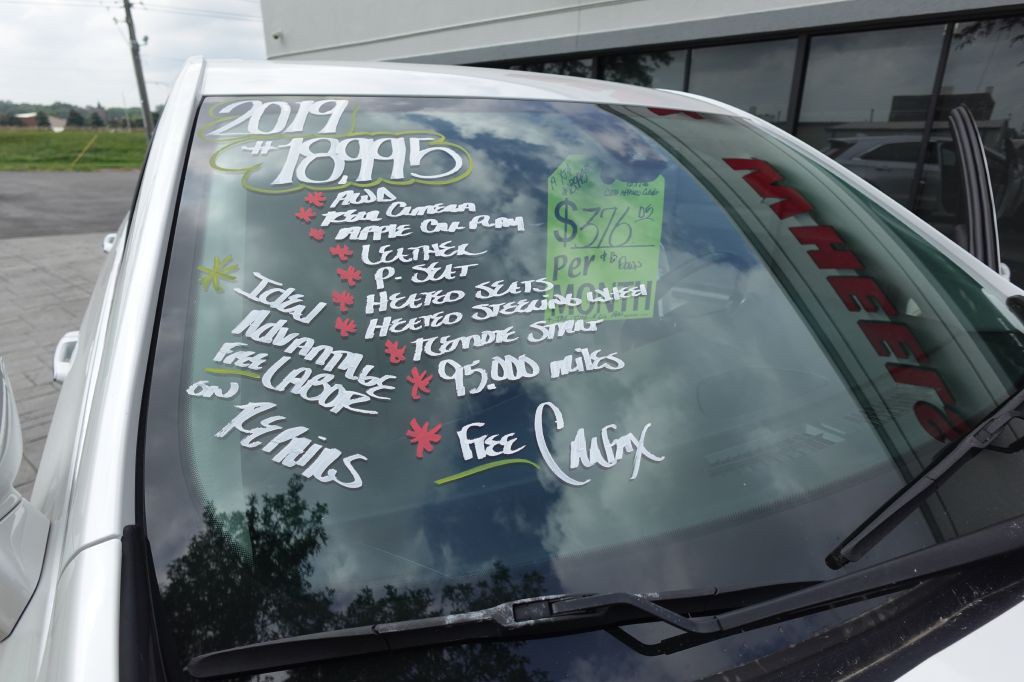 2019
#18,995
* AWD
* REAR CAMERA
* APPLE CAR PLAY
* LEATHER
* P. SEAT
* HEATED SEATS
* HEATED STEERING WHEEL
* REMOTE START
* 95.000 MILES
* Free Carfax
* IDEAL
ADVANTAGE
FREE LABOR
ON REPAIRS
$376 05
Per
MONTH
WHEELS